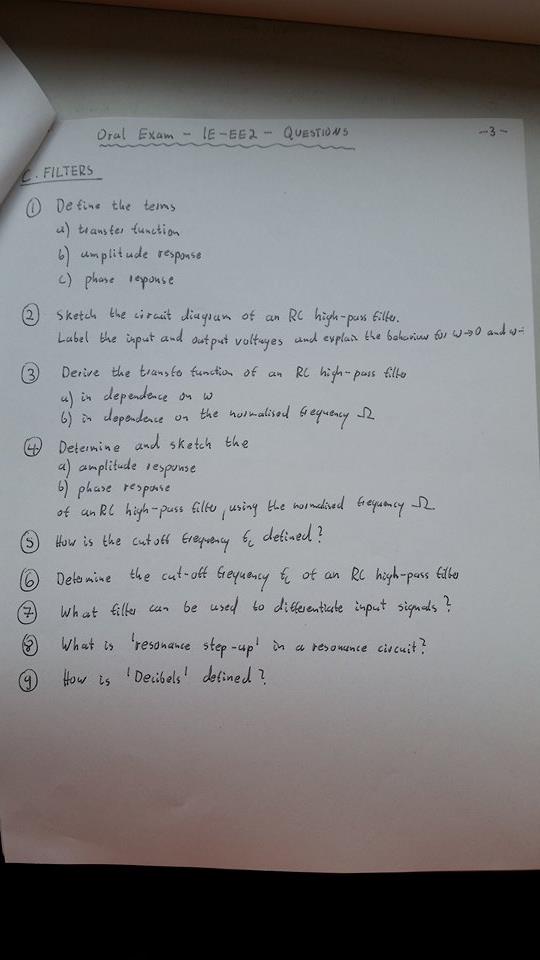 Oral Exam - IE-EE2 - QUESTIONS
-3-
C. FILTERS
① Define the terms
a) transfer function
b) amplitude response
c) phase response
② Sketch the circuit diagram of an RC high-pass filter.
Label the input and output voltages and explain the behaviour for ω→0 and ω→
③ Derive the transfer function of an RC high-pass filter
a) in dependence on ω
b) in dependence on the normalised frequency Ω
④ Determine and sketch the
a) amplitude response
b) phase response
of an RC high-pass filter, using the normalised frequency Ω
⑤ How is the cutoff frequency fc defined?
⑥ Determine the cut-off frequency fc of an RC high-pass filter
⑦ What filter can be used to differentiate input signals?
⑧ What is 'resonance step-up' in a resonance circuit?
⑨ How is 'Decibels' defined?